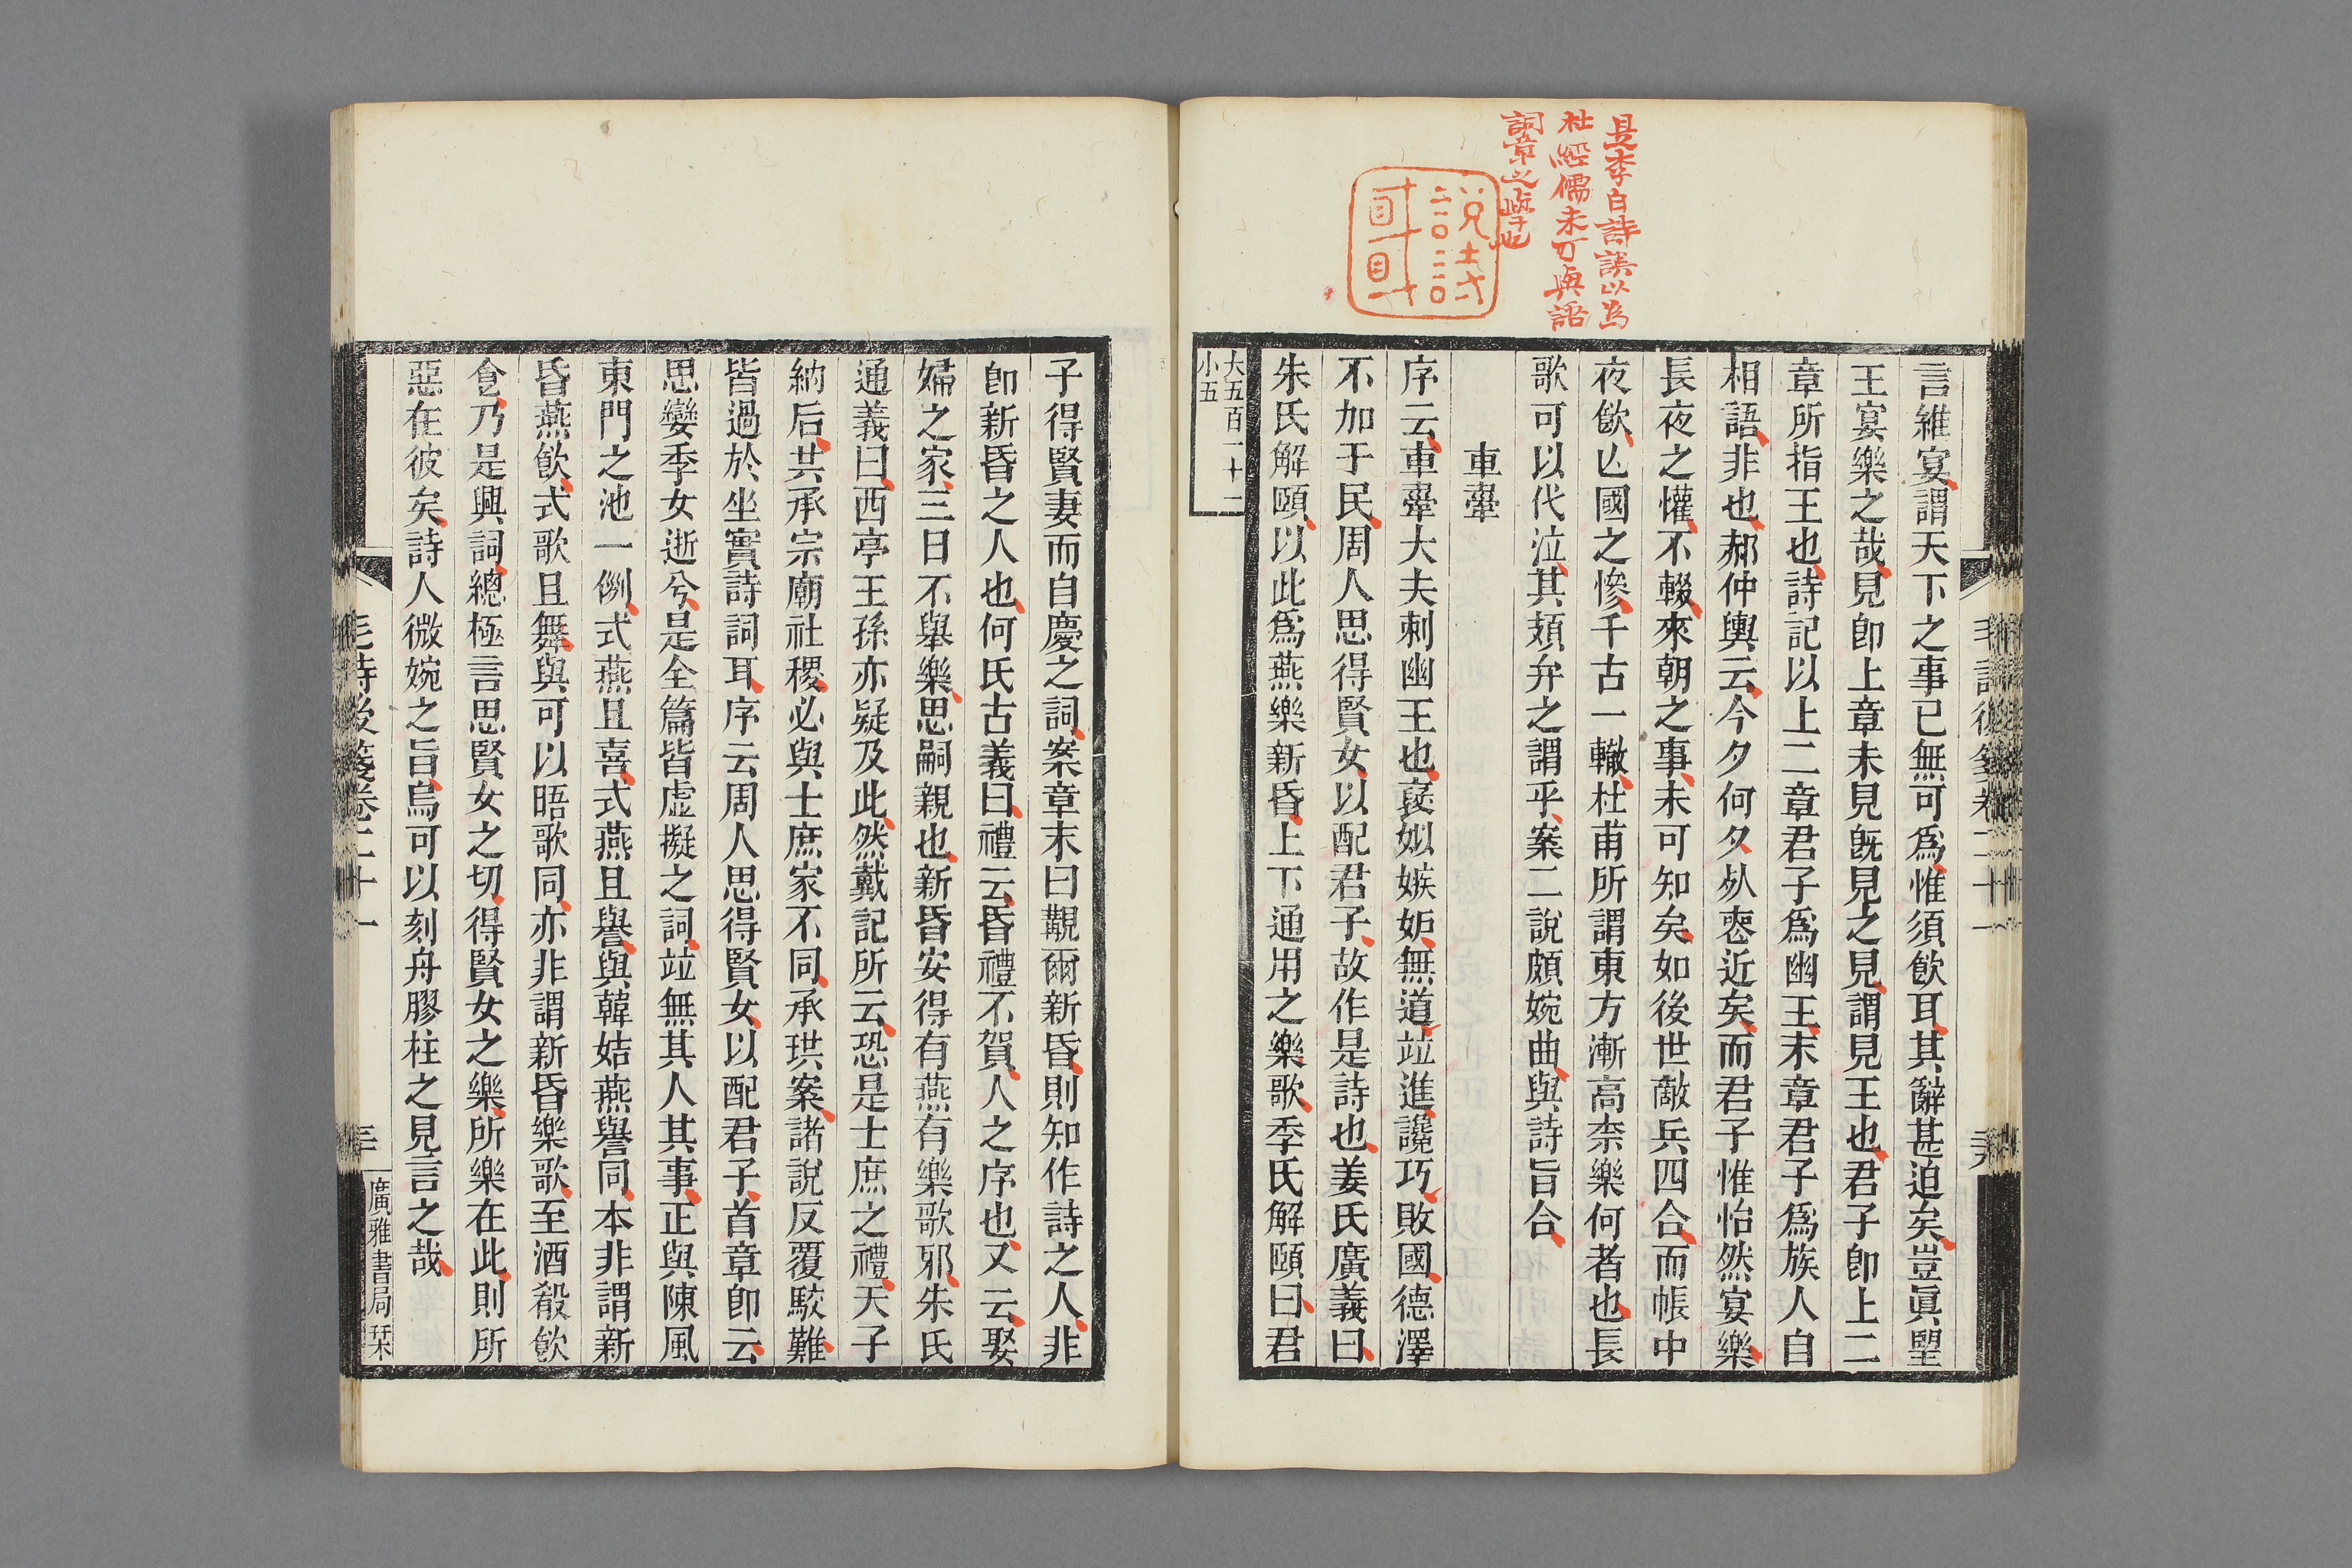 是李白詩誤以為
杜經儒未可與語
詞章之學也
言維宴謂天下之事已無可爲惟須飮耳其辭甚迫矣豈眞望
王宴樂之哉見卽上章未見旣見之見謂見王也君子卽上二
章所指王也詩記以上二章君子爲幽王末章君子爲族人自
相語非也郝仲輿云今夕何夕㱚喪近矣而君子惟怡然宴樂
長夜之懽不輟來朝之事未可知矣如後世敵兵四合而帳中
夜飮亾國之慘千古一轍杜甫所謂東方漸高柰樂何者也長
歌可以代泣其頍弁之謂乎案二說頗婉曲與詩旨合
車舝
序云車舝大夫刺幽王也襃姒嫉妬無道竝進讒巧敗國德澤
不加于民周人思得賢女以配君子故作是詩也姜氏廣義曰
朱氏解頤以此爲燕樂新昏上下通用之樂歌季氏解頤曰君
大五百一十二
小五
子得賢妻而自慶之詞案章末曰覯爾新昏則知作詩之人非
卽新昏之人也何氏古義曰禮云昏禮不賀人之序也又云娶
婦之家三日不舉樂思嗣親也新昏安得有燕有樂歌邪朱氏
通義曰西亭王孫亦疑及此然戴記所云恐是士庶之禮天子
納后共承宗廟社稷必與士庶家不同承珙案諸說反覆駮難
皆過於坐實詩詞耳序云周人思得賢女以配君子首章卽云
思孌季女逝兮是全篇皆虛擬之詞竝無其人其事正與陳風
東門之池一例式燕且喜式燕且譽與韓姞燕譽同本非謂新
昏燕飮式歌且舞與可以晤歌同亦非謂新昏樂歌至酒殽飮
食乃是興詞總極言思賢女之切得賢女之樂所樂在此則所
惡在彼矣詩人微婉之旨烏可以刻舟膠柱之見言之哉
毛詩後箋卷二十一
廣雅書局栞